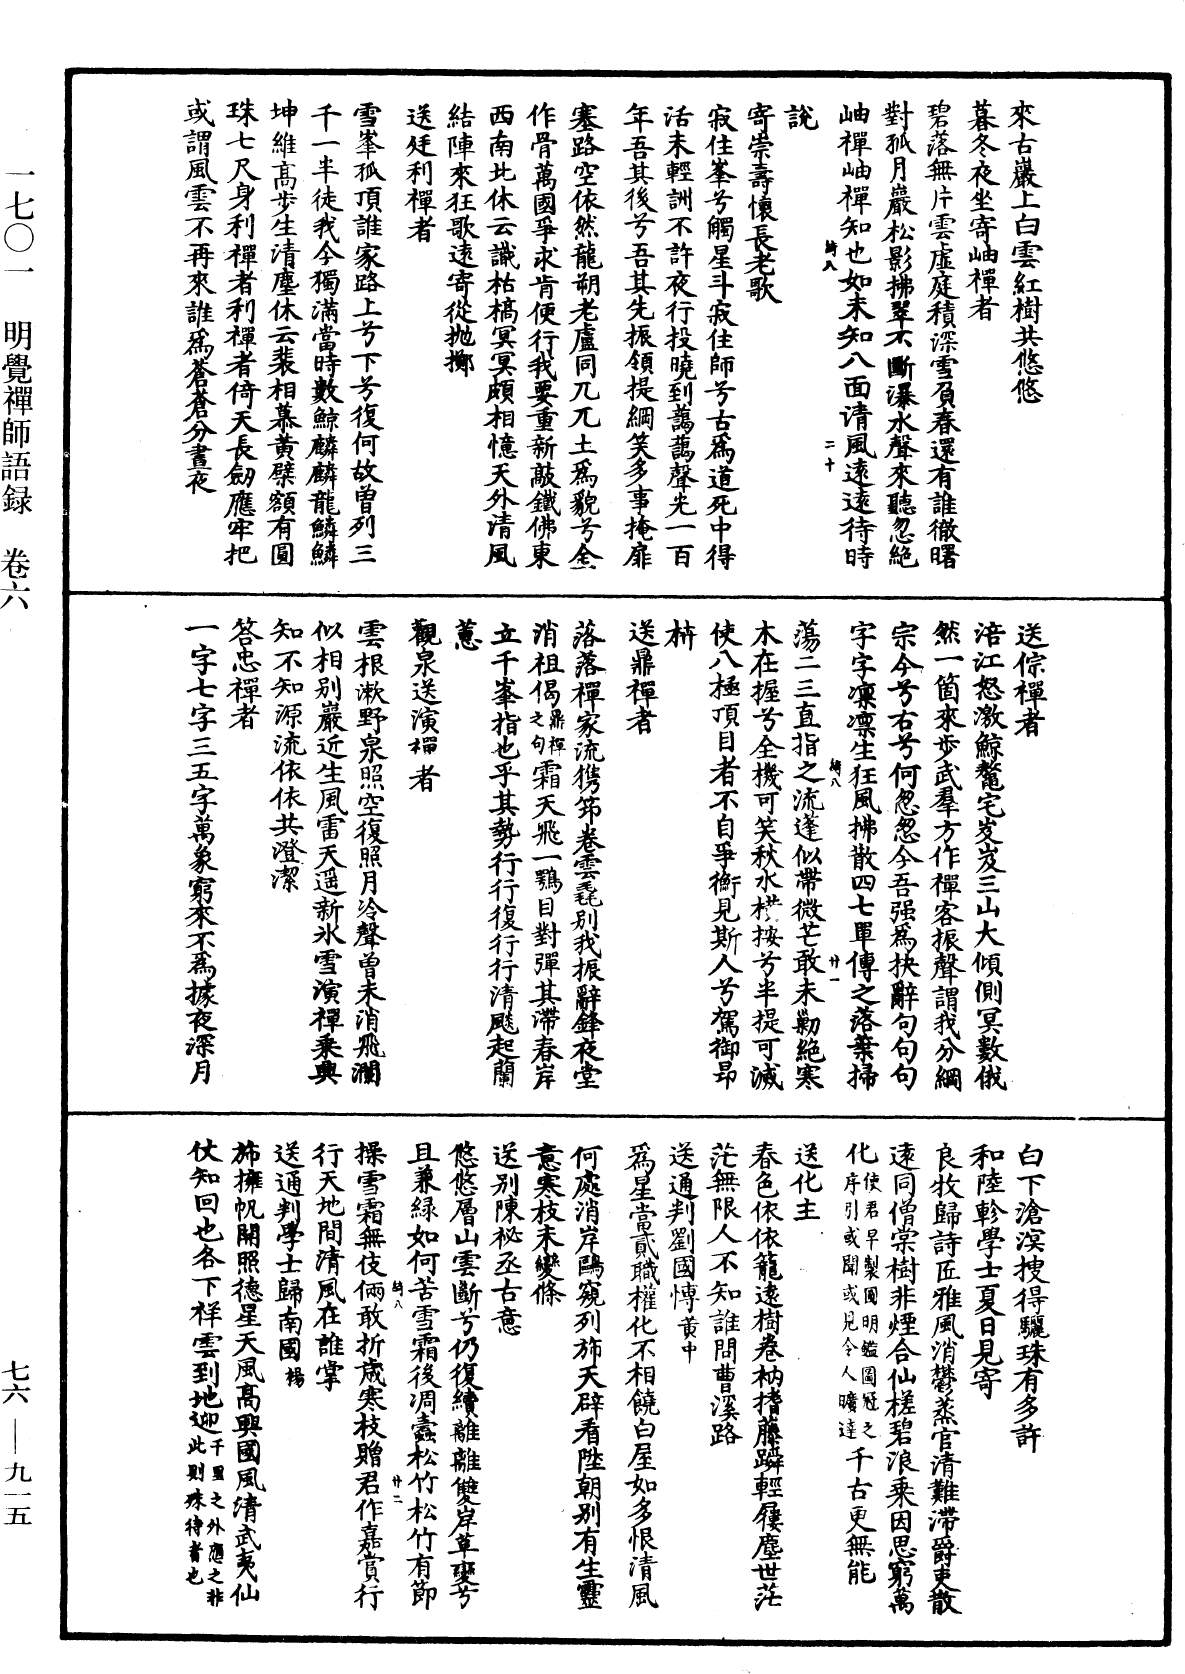 來古巖上白雲紅樹共悠悠
暮冬夜坐寄岫禪者
碧落無片雲虛庭積深雪負春還有誰徹曙
對孤月巖松影拂翠不斷瀑水聲來聽忽絕
岫禪岫禪知也如未知八面清風遠遠待時
說
寄崇壽懷長老歌
寂住峯兮觸星斗寂住師兮古為道死中得
活未輕訓不許夜行投曉到藹藹聲光一百
年吾其後兮吾其先振領提綱笑多事掩扉
塞路空依然龍朔老盧同兀兀土為貌兮金
作骨萬國爭求肯便行我要重新敲鐵佛東
西南北休云識枯槁冥冥頗相憶天外清風
結陣來狂歌遠寄從拋擲
送廷利禪者
雪峯孤頂誰家路上兮下兮復何故曾列三
千一半徒我今獨滿當時數鯨麟麟龍鱗鱗
坤維高步生清塵休云裴相慕黃檗額有圓
珠七尺身利禪者利禪者倚天長劍應牢把
或謂風雲不再來誰為蒼蒼分晝夜
送倧禪者
涪江怒激鯨鼇宅岌岌三山大傾側冥數俄
然一箇來步武羣方作禪客振聲謂我分綱
宗今兮右兮何怱怱今吾强為抉辭句句句
字字凜凜生狂風拂散四七單傳之落葉掃
蕩二三直指之流蓬似帶微芒敢未勦絕寒
木在握兮全機可笑秋水橫按兮半提可滅
使八極頂目者不自爭衡見斯人兮駕御昂
枿
送鼎禪者
落落禪家流携筇卷雲毳別我振辭鋒夜堂
消祖偈鼎禪之句霜天飛一鶚目對彈其滯春岸
立千峯指也乎其勢行行復行行清飈起蘭
蕙
觀泉送演禪者
雲根漱野泉照空復照月泠聲曾未消飛瀾
似相別巖近生風雷天遥新氷雪演禪乘興
知不知源流依依共澄潔
答忠禪者
一字七字三五字萬象窮來不為據夜深月
白下滄溟搜得驪珠有多許
和陸軫學士夏日見寄
良牧歸詩匠雅風消鬱蒸官清難滯爵吏散
遠同僧棠樹非煙合仙槎碧浪乘因思窮萬
化使君早製圓明鑑圖冠之序引或聞或見令人曠達千古更無能
送化主
春色依依籠遠樹卷衲揩藤蹲輕屨塵世茫
茫無限人不知誰問曹溪路
送通判劉國慱黄中
為星當貳職權化不相饒白屋如多恨清風
何處消岸鷗窺列斾天辟看陞朝別有生靈
意寒枝未變條
送別陳祕丞古意
悠悠層山雲斷兮仍復續離離雙岸草變兮
且兼緑如何苦雪霜後凋蠹松竹松竹有節
操雪霜無伎倆敢折歲寒枝贈君作嘉賞行
行天地間清風在誰掌
送通判學士歸南國楊
斾擁帆開照德星天風高興國風清武夷仙
仗知回也各下祥雲到地迎千里之外應之非此則殊待者也
一七〇一 明覺禪師語録 卷六
七六—九一五